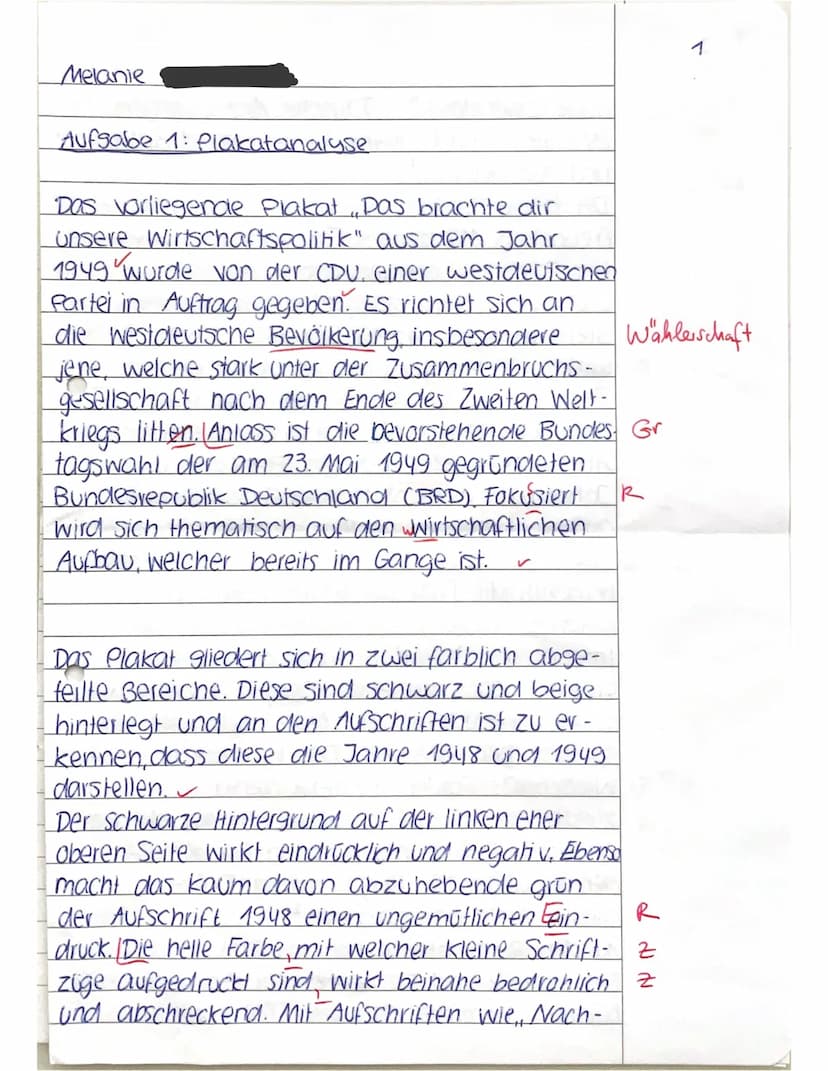 1
Melanie
Aufgabe 1: Plakatanalyse
Das vorliegende Plakat „Das brachte dir
unsere Wirtschaftspolitik" aus dem Jahr
1949 wurde von der CDU, einer westdeutschen
Partei in Auftrag gegeben. Es richtet sich an
die westdeutsche Bevölkerung, insbesondere Wählerschaft
jene, welche stark unter der Zusammenbruchs-
gesellschaft nach dem Ende des Zweiten Welt-
kriegs litten. Anlass ist die bevorstehende Bundes- Gr
tagswahl der am 23. Mai 1949 gegründeten
Bundesrepublik Deutschland (BRD). Fokusiert R
wird sich thematisch auf den wirtschaftlichen
Aufbau, welcher bereits im Gange ist.
Das Plakat gliedert sich in zwei farblich abge-
teilte Bereiche. Diese sind schwarz und beige
hinterlegt und an den Aufschriften ist zu er-
kennen, dass diese die Jahre 1948 und 1949
darstellen.
Der schwarze Hintergrund auf der linken eher
oberen Seite wirkt eindrücklich und negativ. Ebenso
macht das kaum davon abzuhebende grün
der Aufschrift 1948 einen ungemütlichen Ein- R
druck. Die helle Farbe, mit welcher kleine Schrift- Z
züge aufgedruckt sind, wirkt beinahe bedrohlich Z
und abschreckend. Mit Aufschriften wie „Nach-